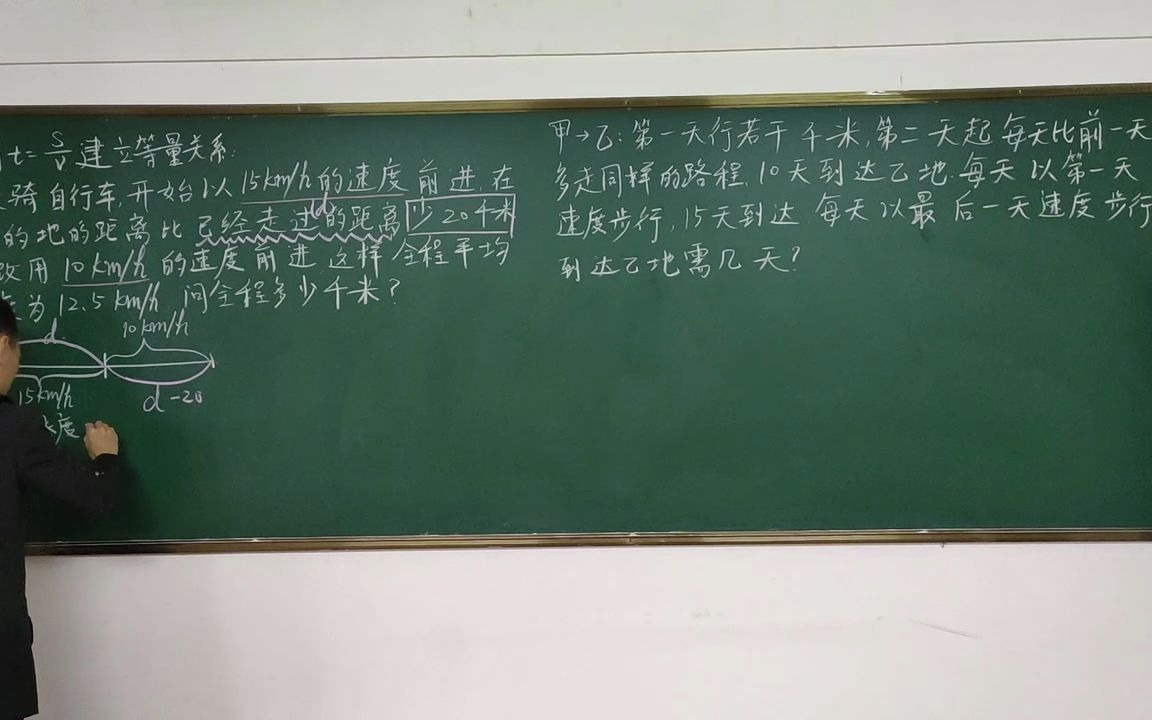 t=S/V 建立等量关系.
骑自行车,开始以15km/h的速度前进.在
的地的距离比已经走过的距离少20千米
d
改用10km/h的速度前进.这样全程平均
为12.5km/h.问全程多少千米?
d
10km/h
15km/h
d-20
度
甲→乙:第一天行若干千米,第二天起每天比前一天
多走同样的路程,10天到达乙地.每天以第一天
速度步行,15天到达.每天以最后一天速度步行
到达乙地需几天?